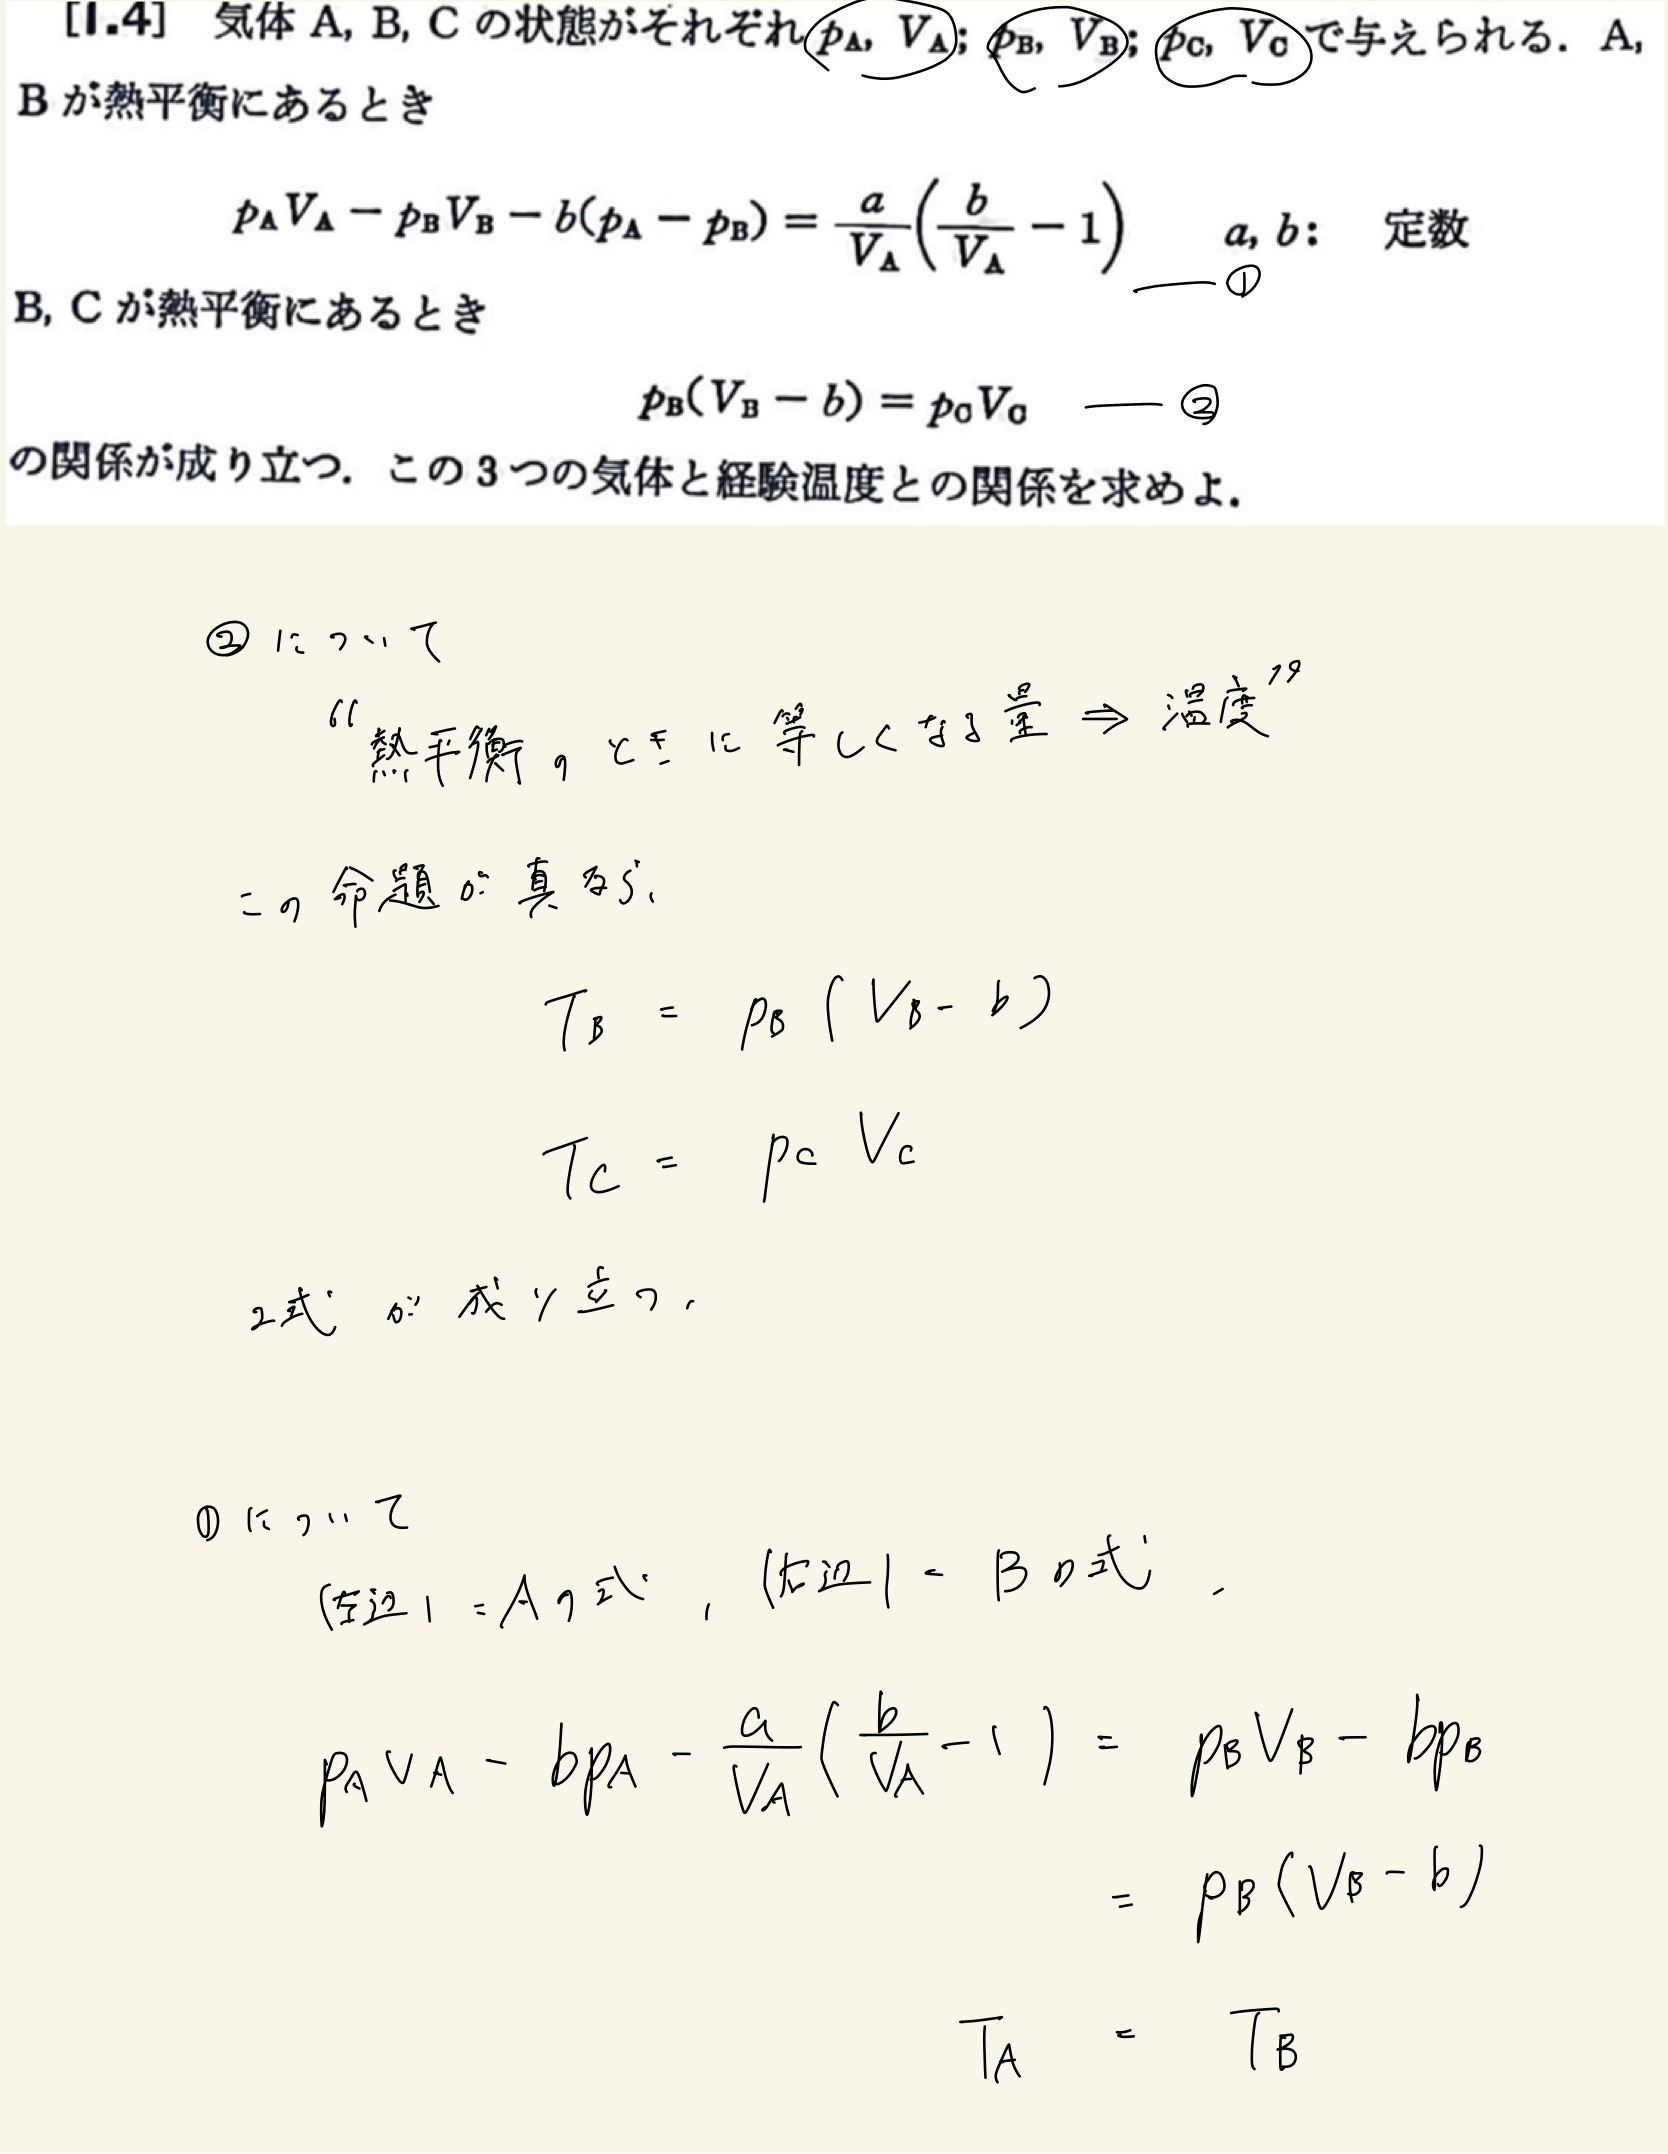 [1.4] 気体 A, B, C の状態がそれぞれ pA, VA; pB, VB; pC, VC で与えられる. A,
B が熱平衡にあるとき
pAVA − pBVB − b(pA − pB) = a/VA (b/VA − 1)  a, b: 定数
—— ①
B, C が熱平衡にあるとき
pB(VB − b) = pCVC —— ②
の関係が成り立つ. この3つの気体と経験温度との関係を求めよ.
②について
“熱平衡のときに等しくなる量 ⇒ 温度”
この命題が真なら、
TB = pB (VB - b)
TC = pC VC
2式が成り立つ.
①について
(左辺) = Aの式, (右辺) = Bの式,
pAVA - bpA - a/VA (b/VA - 1) = pBVB - bpB
= pB(VB - b)
TA = TB